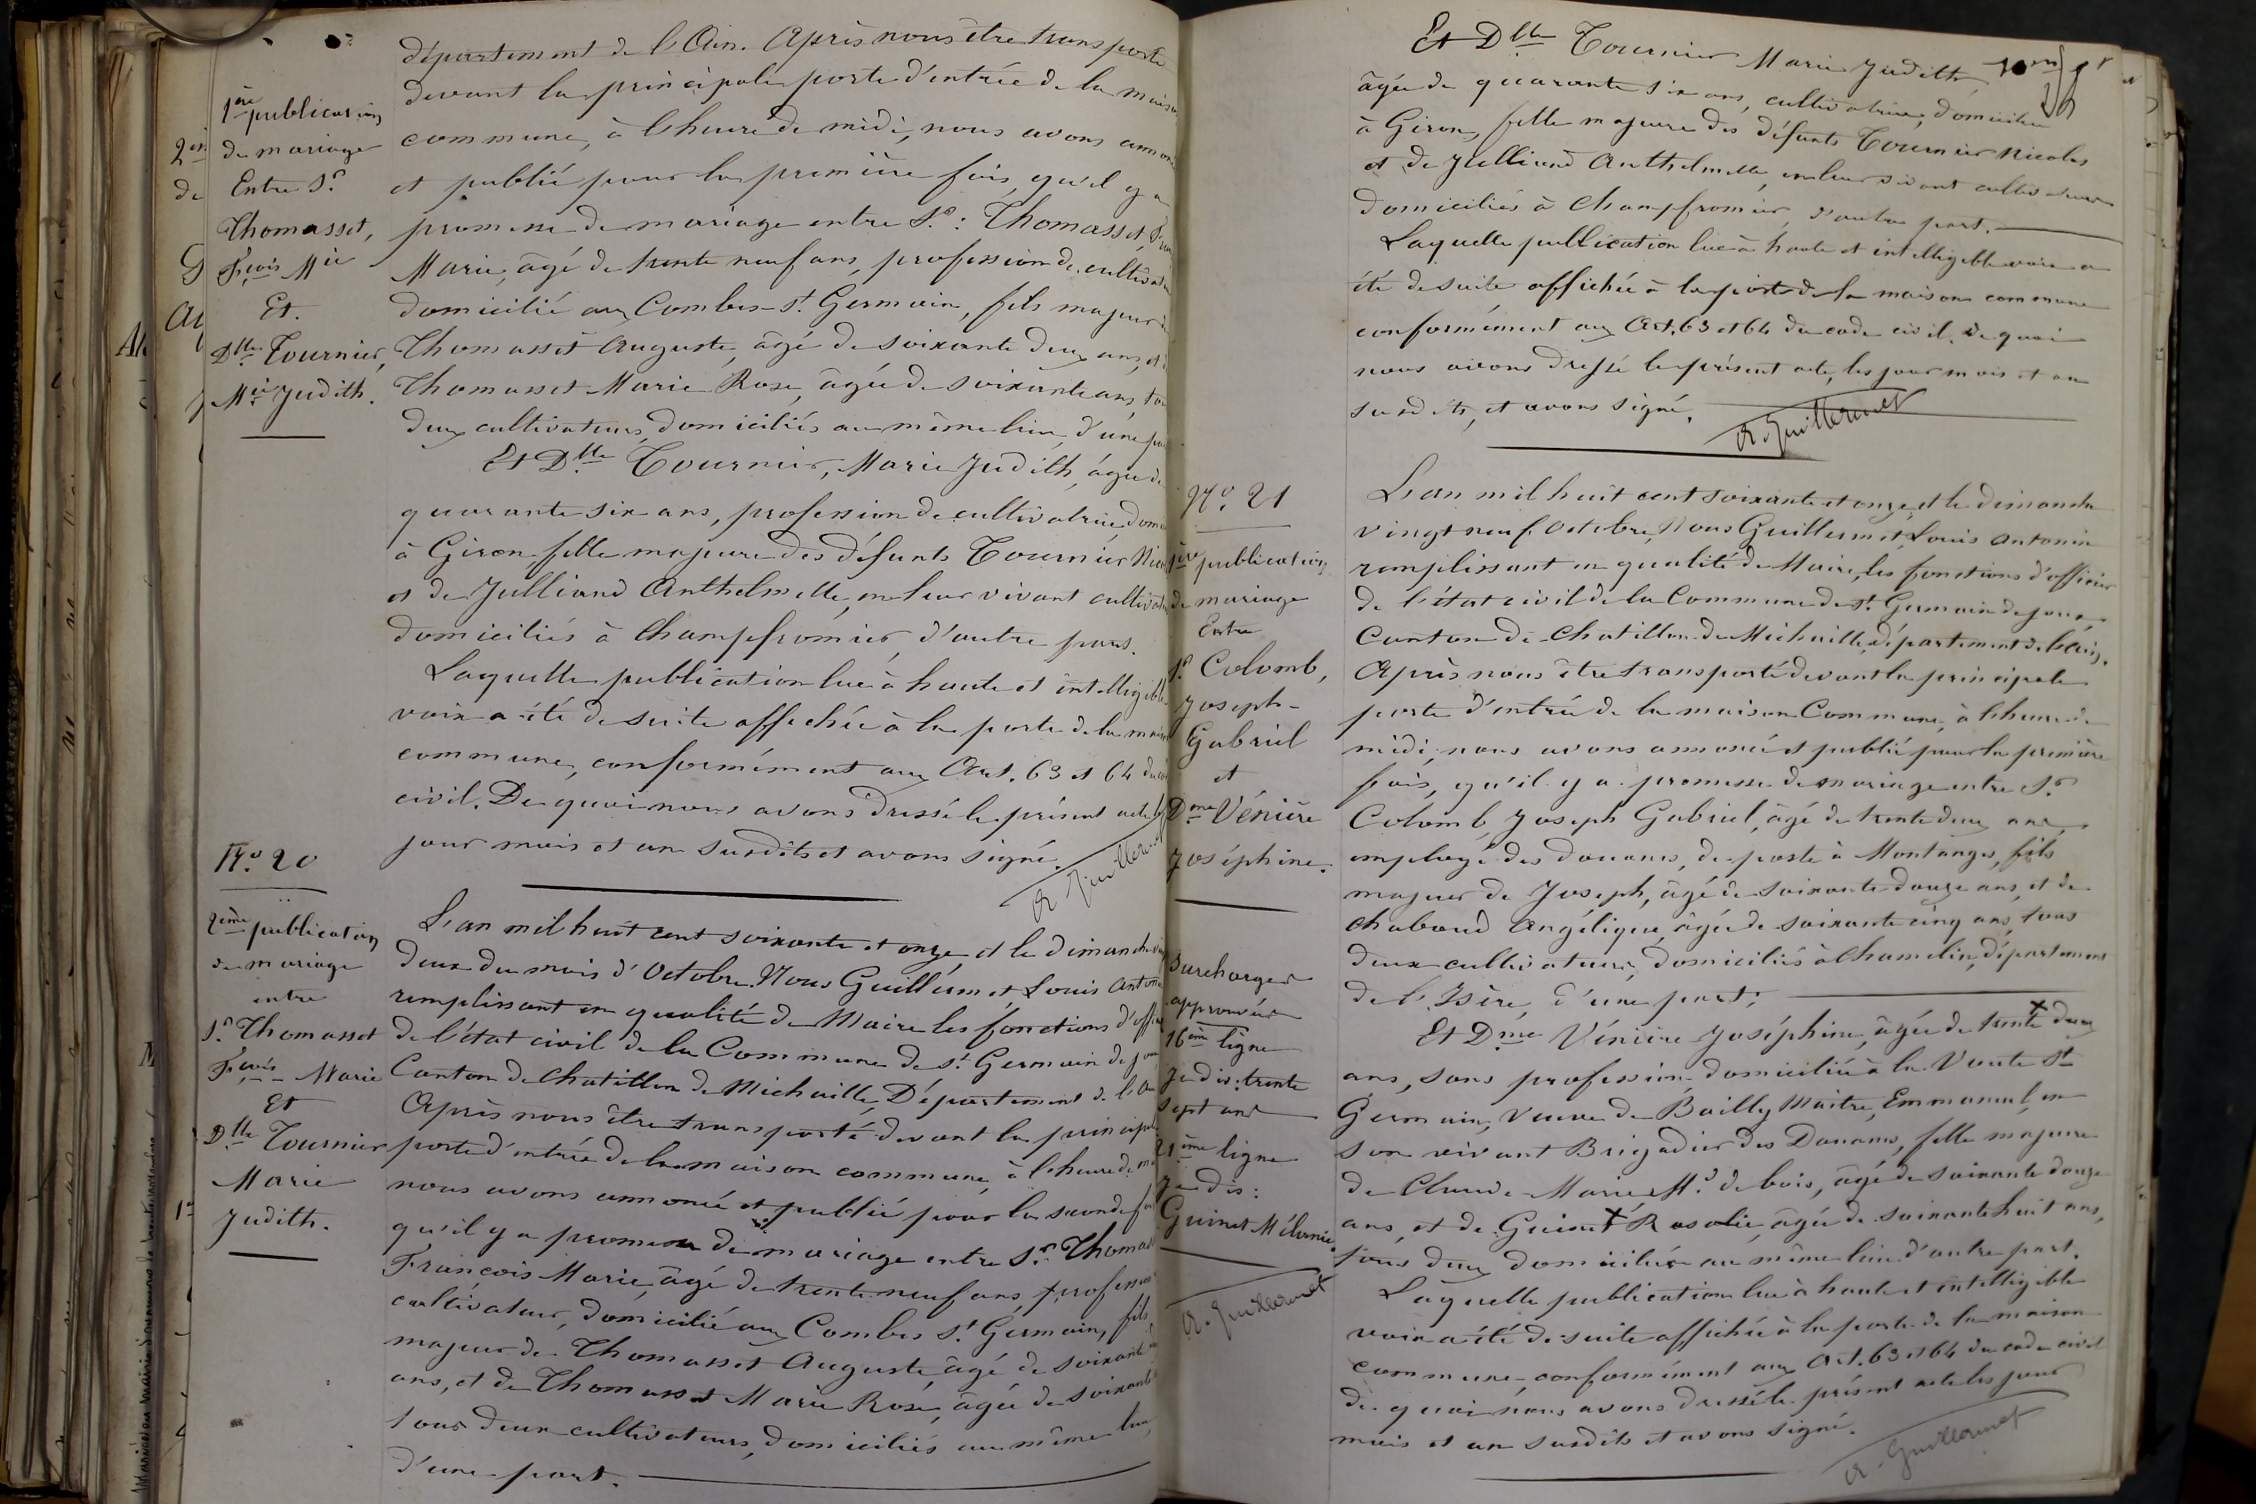 1ère publication
de mariage
Entre Sr
Thomasset,
Fçois Mie
Et
Dlle Tournier,
Mie Judith.
département de l'Ain. Après nous être transporté
devant la principale porte d'entrée de la maison
commune, à l'heure de midi, nous avons annoncé
et publié pour la première fois, qu'il y a
promesse de mariage entre Sr: Thomasset,
Marie, âgé de trente neuf ans, profession de cultivateur
domicilié aux Combes St Germain, fils majeur de
Thomasset Auguste, âgé de soixante deux ans, et de
Thomasset Marie Rose, âgée de soixante ans, tous
deux cultivateurs, domiciliés au même lieu, d'une part
Et Dlle Tournier, Marie Judith, âgée de
quarante six ans, profession de cultivatrice, dom
à Giron, fille majeure des défunts Tournier Nicolas
et de Julliand Anthelmette, en leur vivant cultivateurs
domiciliés à Champfromier, d'autre part.
Laquelle publication lue à haute et intelligible
voix a été de suite affichée à la porte de la maison
commune, conformément aux Art. 63 et 64 du code
civil. De quoi nous avons dressé le présent acte les
jour mois et an susdits et avons signé.
A. Guillermet
No. 20
2ème publication
de mariage
entre
Sr Thomasset
Fçois Marie
Et
Dlle Tournier
Marie
Judith.
L'an mil huit cent soixante et onze, et le dimanche vingt
deux du mois d'Octobre. Nous Guillermet Louis Antonin
remplissant en qualité de Maire les fonctions d'officier
de l'état civil de la Commune de St Germain de joux
Canton de Chatillon de Michaille, Département de l'Ain
Après nous être transporté devant la principale
porte d'entrée de la maison commune, à l'heure de midi
nous avons annoncé et publié pour la seconde fois
qu'il y a promesse de mariage entre Sr. Thomasset
François Marie, âgé de trente neuf ans, profession
cultivateur, domicilié aux Combes St Germain, fils
majeur de Thomasset Auguste, âgé de soixante
ans, et de Thomasset Marie Rose, âgée de soixante
tous deux cultivateurs, domiciliés au même lieu,
d'une part.
Et Dlle Tournier Marie Judith,
âgée de quarante six ans, cultivatrice, domiciliée
à Giron, fille majeure des défunts Tournier Nicolas
et de Julliand Anthelmette, en leur vivant cultivateurs
domiciliés à Champfromier, d'autre part.
Laquelle publication lue à haute et intelligible voix a
été de suite affichée à la porte de la maison commune
conformément aux Art. 63 et 64 du code civil. De quoi
nous avons dressé le présent acte, les jour mois et an
susdits, et avons signé.
A. Guillermet
No. 21
1ère publication
de mariage
Entre
Sr Colomb,
Joseph
Gabriel
et
Dme Vénière
Joséphine.
L'an mil huit cent soixante et onze, et le dimanche
vingt neuf Octobre, Nous Guillermet, Louis Antonin
remplissant en qualité de Maire, les fonctions d'officier
de l'état civil de la Commune de St Germain de joux,
Canton de Chatillon de Michaille, département de l'Ain.
Après nous être transporté devant la principale
porte d'entrée de la maison Commune, à l'heure de
midi, nous avons annoncé et publié pour la première
fois, qu'il y a promesse de mariage entre Sr
Colomb, Joseph Gabriel, âgé de trente deux ans,
employé des douanes, de poste à Montanges, fils
majeur de Joseph, âgé de soixante douze ans, et de
Chaboud Angélique, âgée de soixante cinq ans, tous
deux cultivateurs, domiciliés à Chamelin, département
de l'Isère, d'une part;
Et Dme Vénière Joséphine, âgée de trente deux
ans, sans profession, domiciliée à la Voute St
Germain, Veuve de Bailly Maitre, Emmanuel, en
son vivant Brigadier des Douanes, fille majeure
de Claude Marie Md de bois, âgé de soixante douze
ans, et de Guinet Rosalie, âgée de soixante huit ans,
tous deux domiciliés au même lieu d'autre part.
Laquelle publication lue à haute et intelligible
voix a été de suite affichée à la porte de la maison
commune, conformément aux Art. 63 et 64 du code civil
de quoi nous avons dressé le présent acte les jour
mois et an susdits et avons signé.
A. Guillermet
Surcharges
approuvées
16ème ligne
Je dis: trente
sept ans
21ème ligne
Je dis:
Guinet Mélanie.
A. Guillermet